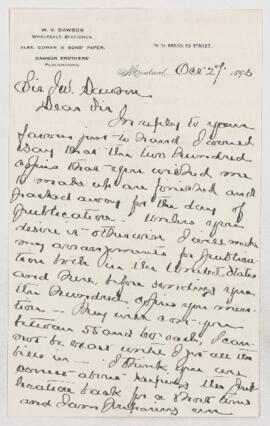 W. V. DAWSON
WHOLESALE STATIONER.
ALEX. COWAN & SONS' PAPER.
DAWSON BROTHERS'
PUBLICATIONS.
STREET.
Montreal, Oct 27 1893
Sir J W. Dawson
Dear Sir
In reply to your
favour just to hand I would
say that the two hundred
copies that you wished me
to make up are finished and
packed away for the day of
publication. Unless you
desire it otherwise I will make
my arrangements for publica
tion both in the United States
and here, before sending you
the hundred copies you men
tion. They will cost you
between 55 and 60 each, I can
not be exact until I get all the
bills in. I think you are
correct about keeping the pub
lication back for a short time
and I am preparing an